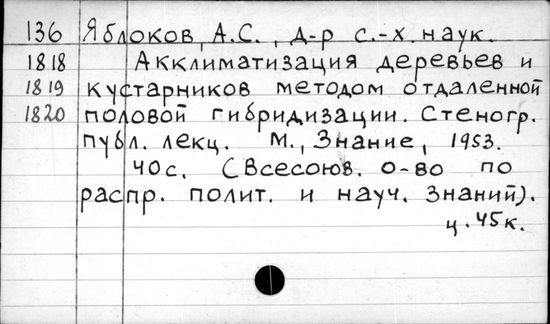 136 Яблоков, А.С., д-р с.-х. наук.
1818 Акклиматизация деревьев и
1819 кустарников методом отдаленной
1820 половой гибридизации. Стеногр.
публ. лекц. М., Знание, 1953.
40с. (Всесоюз. о-во по
распр. полит. и науч. знаний).
ц. 45к.